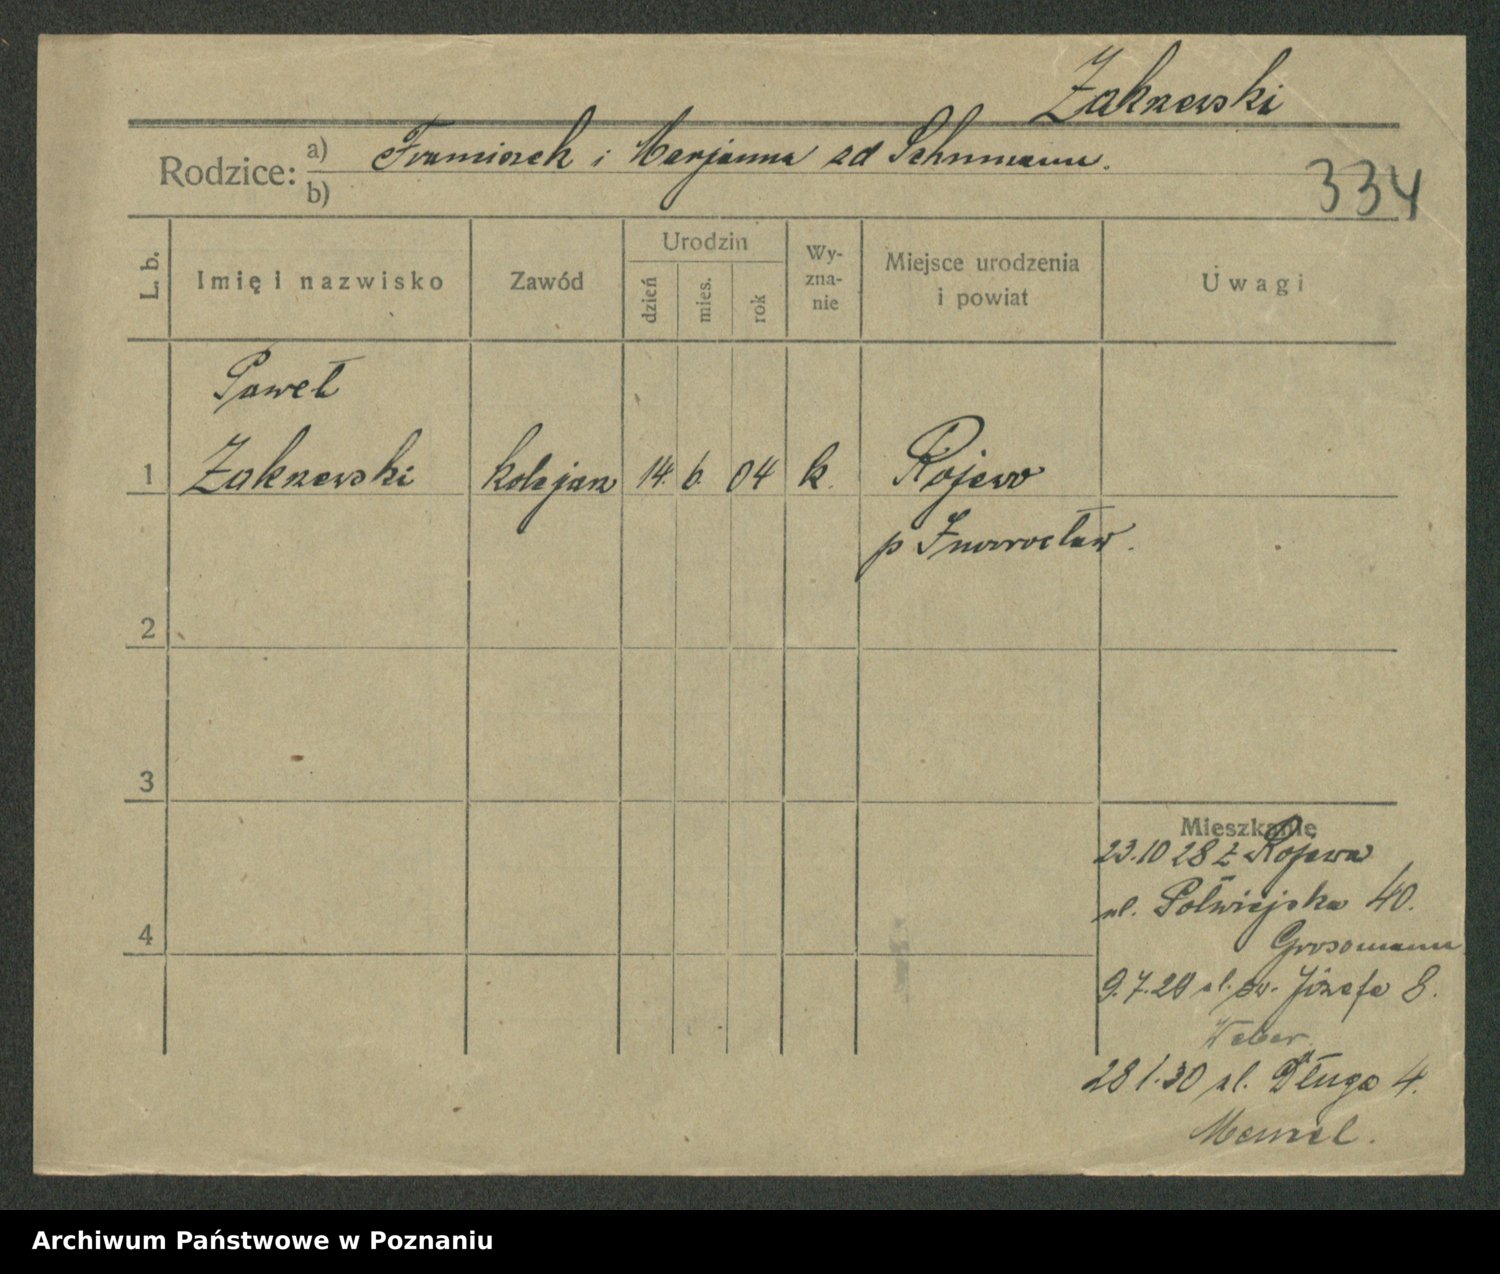 Zakrzewski
Rodzice: a) Franciszek i Marjanna zd Schumann.
b)
334
L. b.
Imię i nazwisko
Zawód
Urodzin
dzień
mies.
rok
Wy-
zna-
nie
Miejsce urodzenia
i powiat
Uwagi
Paweł
1 Zakrzewski kolejarz 14. 6. 04 k. Rojewo
p Inowrocław.
2
3
Mieszkanie
23.10 28 z Rojewa
ul. Półwiejska 40.
4
Grossmann
9.7.29 ul. św. Józefa 8.
Weber
28 1.30 ul. Długa 4.
Menzel.
Archiwum Państwowe w Poznaniu